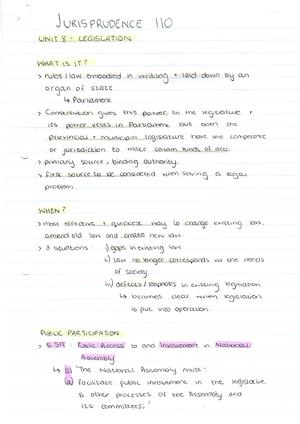 JURISPRUDENCE 110
UNIT 8 - LEGISLATION
WHAT IS IT?
> rules/law embodied in writing + laid down by an
organ of state
↳ Parliament
> Constitution gives this power to the legislature +
its power vests in Parliament but both the
provincial + municipal legislature have the competence
or jurisdiction to make certain kinds of acts.
> primary source, binding authority.
> first source to be considered when solving a legal
problem.
WHEN?
> most effective + quickest way to change existing law,
amend old law and create new law.
> 3 situations: i) gaps in existing law
ii) law no longer corresponds w the needs
of society
iii) defects/loopholes in existing legislation
↳ becomes clear when legislation
is put into operation.
PUBLIC PARTICIPATION
> S 59: Public Access to and Involvement in National
Assembly
↳ (1) "The National Assembly must-
(a) Facilitate public involvement in the legislative
& other processes of the Assembly and
its committees;"